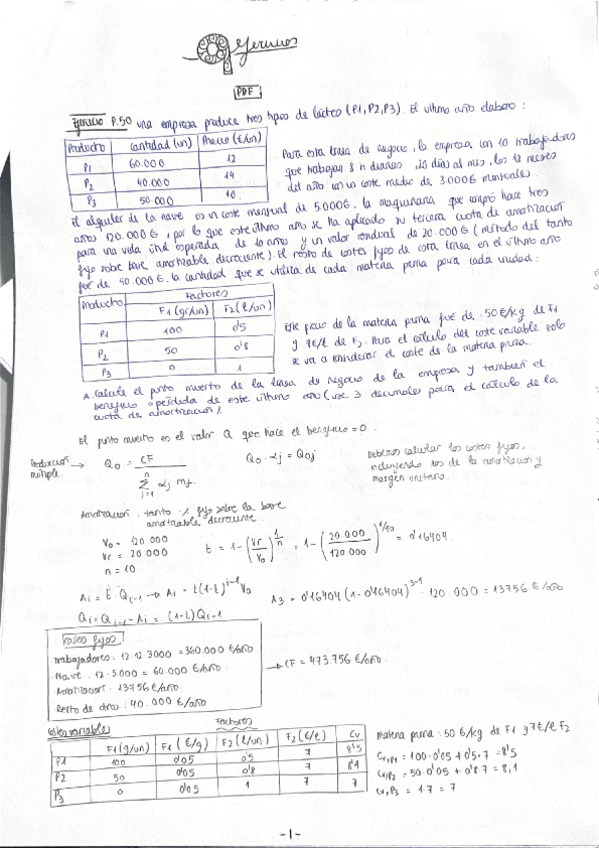 ejercicios
PDF
Ejercicio P.50 una empresa produce tres tipos de lácteo (P1, P2, P3). El último año elaboro:
Producto cantidad (un) Precio (€/un)
P1 60.000 12
P2 40.000 14
P3 50.000 10
Para esta línea de negocio, la empresa, con 10 trabajadores
que trabajan 8 h diarias, 20 días al mes, los 12 meses
del año con un coste medio de 3000€ mensuales.
El alquiler de la nave es un coste mensual de 5000€. la maquinaria que compró hace tres
años 120.000 €, por lo que este último año se ha aplicado su tercera cuota de amortización
para una vida útil esperada de 10 años y un valor residual de 20.000 € (método del tanto
fijo sobre base amortizable decreciente). El resto de costes fijos de esta línea en el último año
fue de 40.000 €. la cantidad que se utiliza de cada materia prima para cada unidad:
Producto Factores
F1 (gr/un) F2 (l/un)
P1 100 0'5
P2 50 0'8
P3 0 1
El precio de la materia prima fue de 50 €/kg de F1
y 7€/l de F2. Para el cálculo del coste variable solo
se va a considerar el coste de la materia prima.
A. Calcule el punto muerto de la línea de negocio de la empresa y también el
beneficio o pérdida de este último año (use 3 decimales para el cálculo de la
cuota de amortización).
El punto muerto es el valor Q que hace el beneficio = 0.
Producción múltiple → Q₀ = CF / Σ(j=1, n) αj mj. Q₀ · αj = Q₀j
Debemos calcular los costes fijos,
incluyendo los de la amortización y
margen unitario.
Amortización: tanto % fijo sobre la base
amortizable decreciente.
V₀ = 120.000
Vr = 20 000
n = 10
t = 1 - (Vr/V₀)^(1/n) = 1 - (20 000/120 000)^(1/10) = 0'16404.
Ai = t · Qi-1 → Ai = t(1-t)^(i-1) V₀
Qi = Qi-1 - Ai = (1-t) Qi-1
A3 = 0'16404 (1-0'16404)^(3-1) · 120 000 = 13756 €/año
Costes fijos
Trabajadores: 12·12·3000 = 360.000 €/año
Nave: 12·5000 = 60.000 €/año.
Amortización: 13756 €/año.
Resto de otros: 40.000 €/año
→ CF = 473.756 €/año.
Costes variables
Factores
F1 (g/un) F1 (€/g) F2 (l/un) F2 (€/l) Cv
P1 100 0'05 0'5 7 8'5
P2 50 0'05 0'8 7 8'1
P3 0 0'05 1 7 7
materia prima: 50 €/kg de F1 y 7€/l F2
Cv,P1 = 100·0'05 + 0'5·7 = 8'5
Cv,P2 = 50·0'05 + 0'8·7 = 8,1
Cv,P3 = 1·7 = 7
-1-